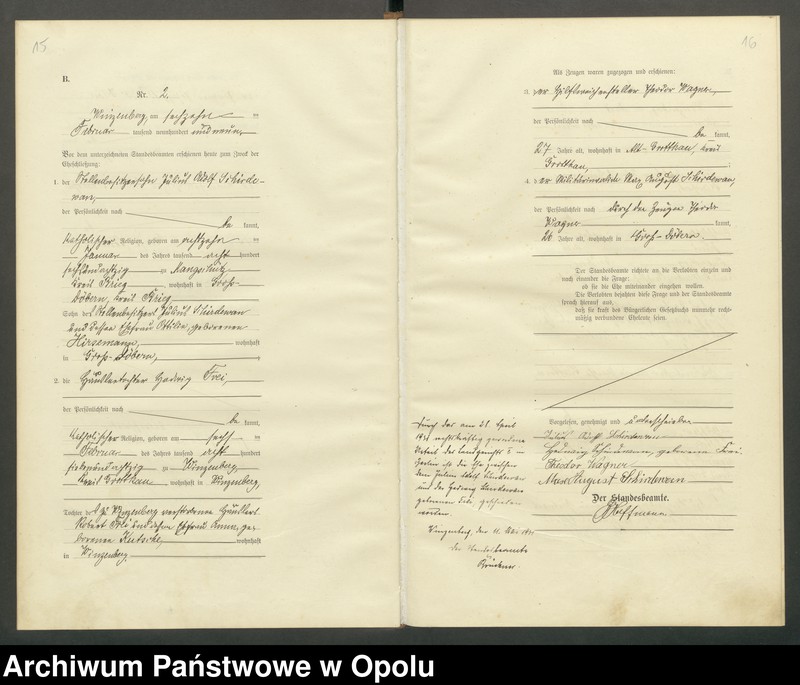 15
B.
Nr. 2.
Winzenberg, am sechzehnten
Februar tausend neunhundert und neun
Vor dem unterzeichneten Standesbeamten erschienen heute zum Zweck der
Eheschließung:
1. der Stellenbesitzersohn Julius Adolf Schirde-
wan,
der Persönlichkeit nach
be kannt,
katholischer Religion, geboren am achtzehn ten
Januar des Jahres tausend acht hundert
sechsundachtzig zu Mangschütz,
Kreis Brieg, wohnhaft in Groß-
Döbern, Kreis Brieg,
Sohn des Stellenbesitzers Julius Schirdewan
und dessen Ehefrau Ottilie, geborenen
Hirsemann, wohnhaft
in Groß-Döbern,
2. die Häuslertochter Hedwig Frei,
der Persönlichkeit nach
be kannt,
katholischer Religion, geboren am sechs ten
Februar des Jahres tausend acht hundert
siebenundachtzig zu Winzenberg,
Kreis Grottkau, wohnhaft in Winzenberg
Tochter des zu Winzenberg verstorbenen Häuslers
Robert Frei und dessen Ehefrau Anna, ge-
borenen Kutsche, wohnhaft
in Winzenberg
16
Als Zeugen waren zugezogen und erschienen:
3. der Hilfsweichensteller Theodor Wagner,
der Persönlichkeit nach
be kannt,
27 Jahre alt, wohnhaft in Alt-Grottkau, Kreis
Grottkau;
4. der Militärinvalide Max August Schirdewan,
der Persönlichkeit nach durch den Zeugen Theodor
Wagner kannt,
26 Jahre alt, wohnhaft in Groß-Döbern.
Der Standesbeamte richtete an die Verlobten einzeln und
nach einander die Frage:
ob sie die Ehe miteinander eingehen wollen.
Die Verlobten bejahten diese Frage und der Standesbeamte
sprach hierauf aus,
daß sie kraft des Bürgerlichen Gesetzbuchs nunmehr recht-
mäßig verbundene Eheleute seien.
Vorgelesen, genehmigt und unterschrieben
Julius Adolf Schirdewan
Hedwig Schirdewan, geborene Frei.
Theodor Wagner
Max August Schirdewan
Der Standesbeamte.
Durch das am 21. April
rechtskräftig gewordene
Urteil des Landgerichts
ist die Ehe zwischen
dem Julius Adolf Schirdewan
und der Hedwig Schirdewan
geborenen Frei, geschieden
worden.
Winzenberg, den 11. Mai
Der Standesbeamte
Archiwum Państwowe w Opolu